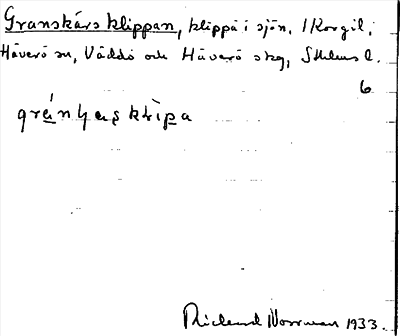 Granskärs klippan, klippa i sjön, i Korgil,
Häverö sn, Väddö och Häverö skg, Sthlms l.
6
Rickard Norrman 1933.